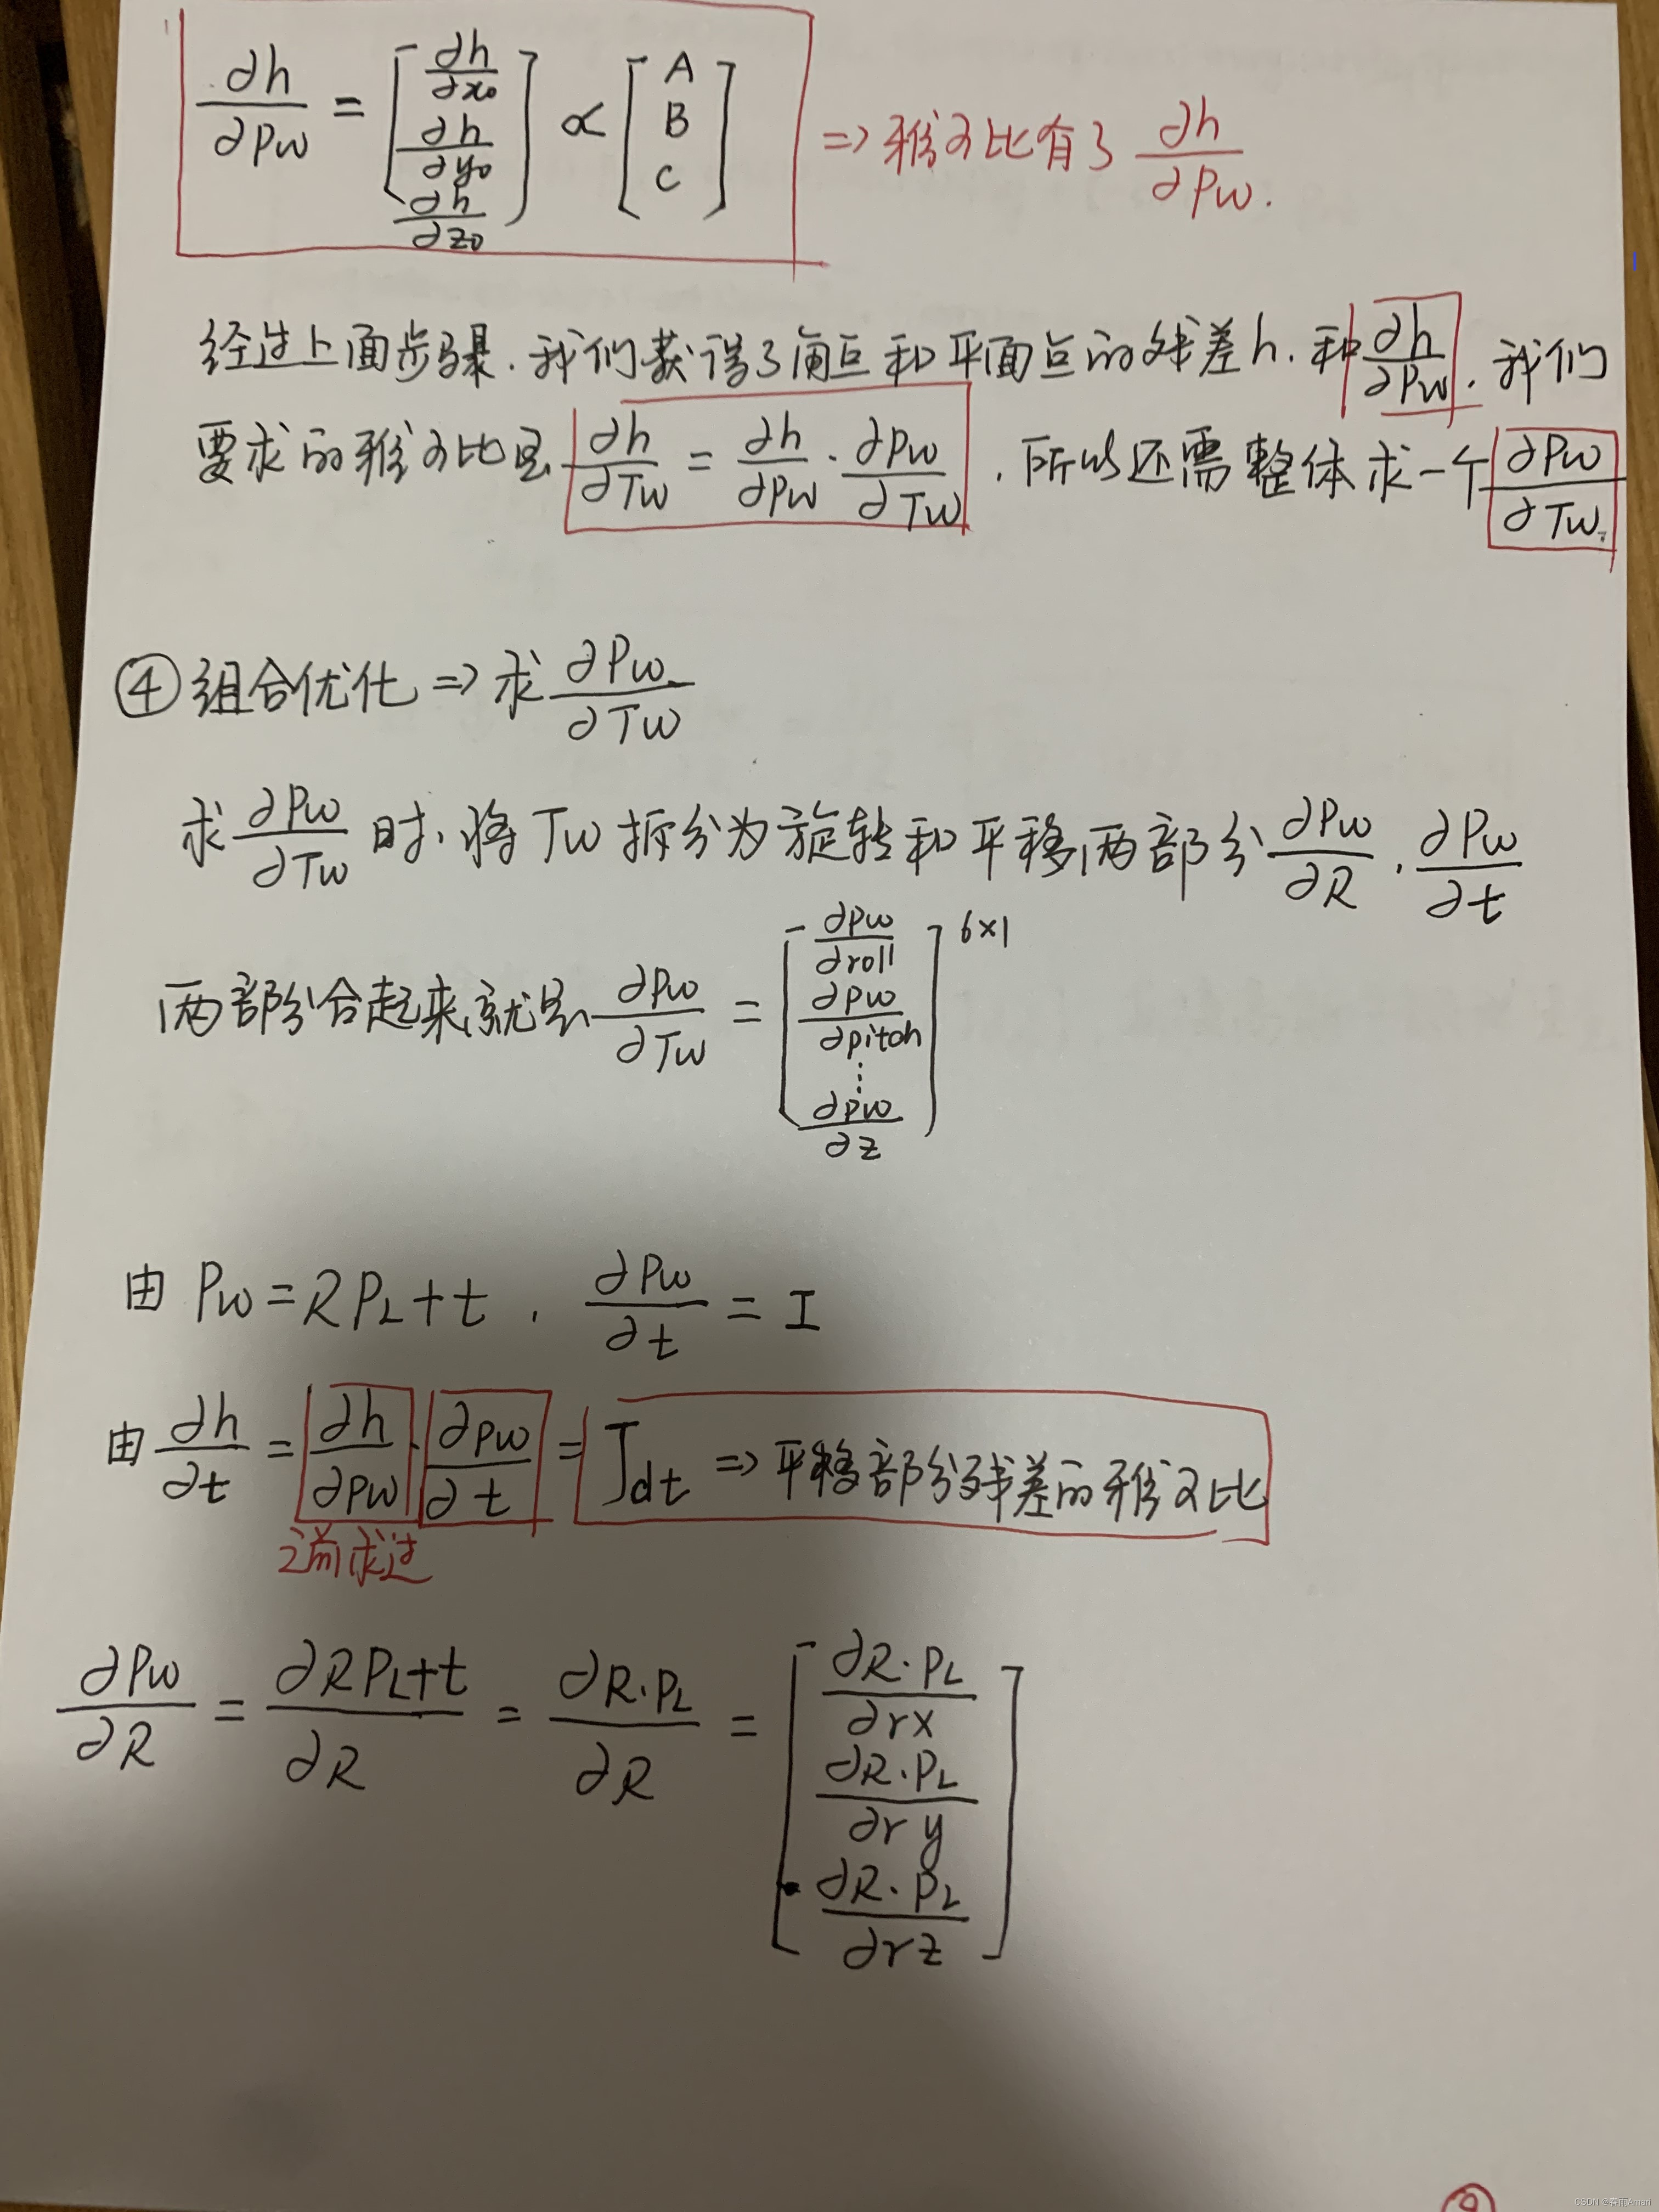 ∂h/∂Pw = [∂h/∂x₀ ∂h/∂y₀ ∂h/∂z₀] ∝ [A B C] => 雅可比有了 ∂h/∂Pw.
经过上面步骤. 我们获得了角点和平面点的残差h. 和 ∂h/∂Pw. 我们
要求的雅可比是 ∂h/∂Tw = ∂h/∂Pw · ∂Pw/∂Tw . 所以还需整体求一个 ∂Pw/∂Tw.
④ 组合优化 => 求 ∂Pw/∂Tw
求 ∂Pw/∂Tw 时, 将 Tw 拆分为旋转和平移两部分 ∂Pw/∂R , ∂Pw/∂t
两部分合起来就是 ∂Pw/∂Tw = [∂Pw/∂roll ∂Pw/∂pitch ⋮ ∂Pw/∂z] 6×1
由 Pw = R P_L + t , ∂Pw/∂t = I
由 ∂h/∂t = ∂h/∂Pw · ∂Pw/∂t = J_dt => 平移部分残差的雅可比
之前求过
∂Pw/∂R = ∂RP_L+t/∂R = ∂R·P_L/∂R = [∂R·P_L/∂rx ∂R·P_L/∂ry ∂R·P_L/∂rz]